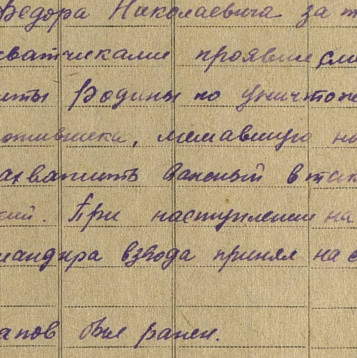 Федора Николаевича за т
хватчиками проявил см
щиты Родины по уничтоже
отивника, мешавшую на
захватить важный в так
кий. При наступлении на
мандира взвода принял на с
апов был ранен.